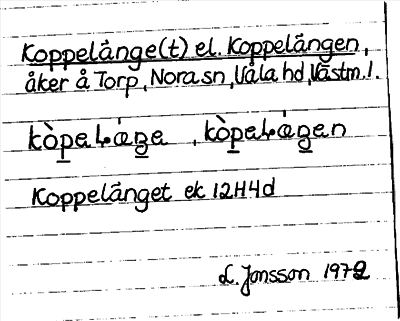 Koppelänge(t) el. Koppelängen,
åker å Torp, Nora sn, Våla hd, Västm.l.
kòpaLǽŋe , kòpaLǽŋen
Koppelänget ek 12H4d
L. Jonsson 1972